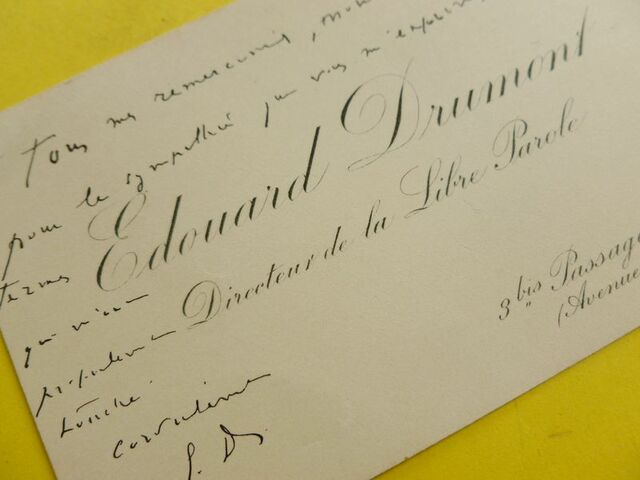 Tous mes remerciements, mon
pour la sympathie que vous m'exprimez
termes
Edouard Drumont
qui m'ont
Directeur de la Libre Parole
profondément
touché.
3 bis Passage
(Avenue
cordialement
E. D.